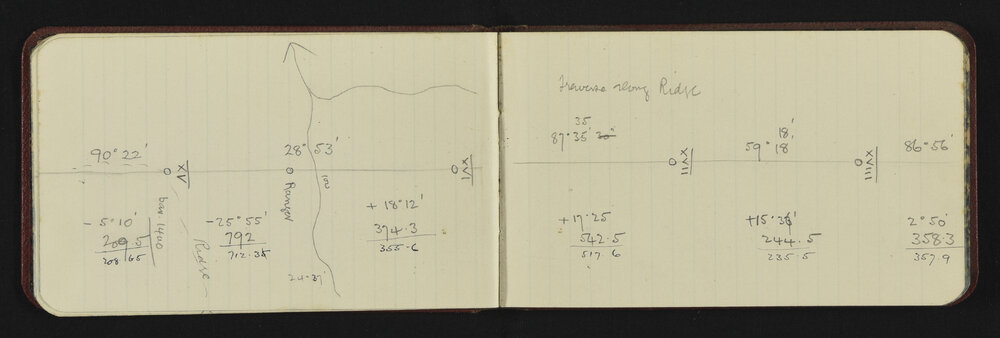 90° 22'
XV
- 5° 10'
209.5
208.65
bar. 1400
Ridge
28° 53'
Ranger
- 25° 55'
792
712.35
24.37
XVI
+ 18° 12'
374.3
355.6
Traverse along Ridge
35
87° 35' 20"
XVII
+ 17.25
542.5
517.6
18'
59° 18
XVIII
+15° 36'
244.5
235.5
86° 56'
2° 50'
358.3
357.9